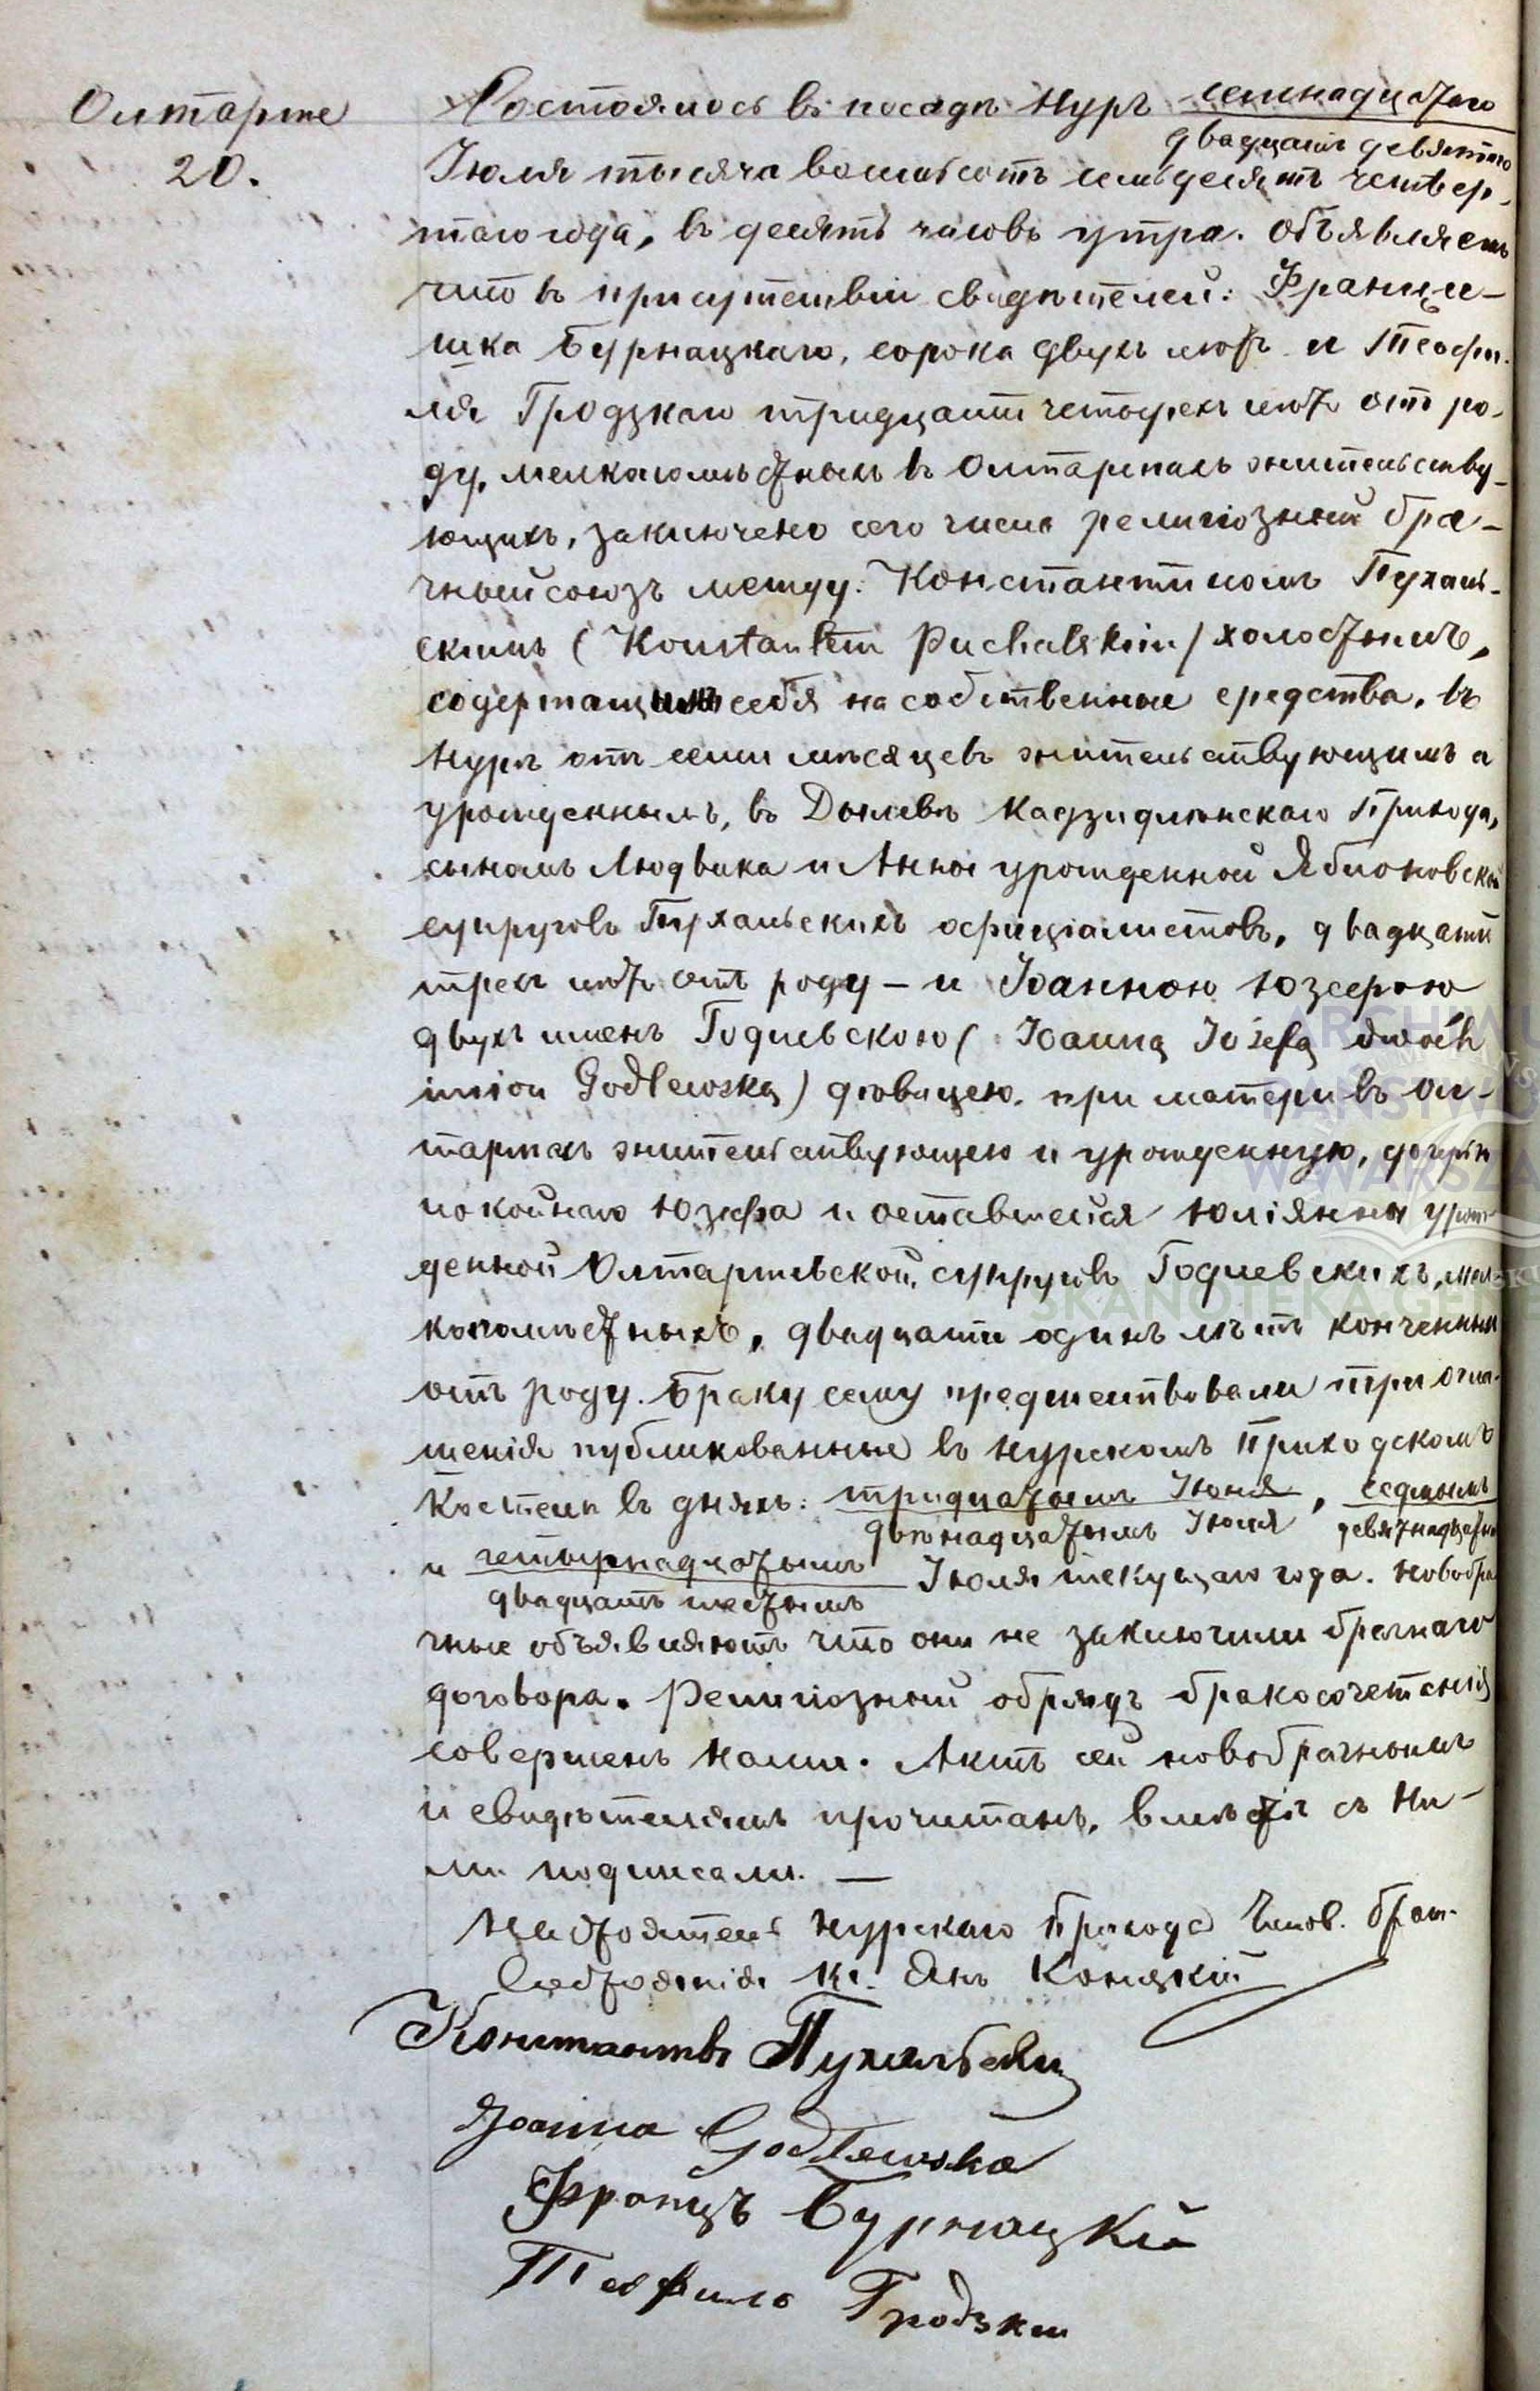 Олтарже
20.
Состоялось въ посадѣ Нурѣ семнадцатаго
двадцать девятаго
Іюля тысяча восмьсотъ семьдесятъ четвер-
таго года, въ десять часовъ утра. Объявляемъ
что въ присутствіи свидѣтелей: Францы-
шка Бурнацкаго, сорока двухъ лѣтъ и Теофи-
ля Гродзкаго тридцати четырехъ лѣтъ отъ ро-
ду, мелкопомѣстныхъ въ Олтаржахъ жительству-
ющихъ, заключено сего числа религіозный бра-
чный союзъ между: Константиномъ Пухаль-
скимъ (Konstantem Puchalskim) холостымъ,
содержащимъ себя на собственные средства, въ
Нурѣ отъ семи мѣсяцевъ жительствующимъ а
урожденнымъ, въ Дылевѣ Кадзидлянскаго Прихода,
сыномъ Людвика и Анны урожденной Яблоновской
супруговъ Пухальскихъ офиціалистовъ, двадцати
трехъ лѣтъ отъ роду – и Іоанною Юзефою
двухъ именъ Годлевскою ( Joanną Józefą dwóch
imion Godlewską) дѣвицею, при матери въ Ол-
таржахъ жительствующею и урожденную, дочерью
покойнаго Юзефа и оставшейся Юліянны урож-
денной Олтаржевской, супруговъ Годлевскихъ, мел-
копомѣстныхъ, двадцати одинъ лѣтъ конченныхъ
отъ роду. Браку сему предшествовали три огла-
шенія публикованные въ Нурскомъ Приходскомъ
Костелѣ въ дняхъ: тридцатымъ Іюня, седмымъ
двѣнадцатымъ Іюля девятнадцатымъ
и четырнадцатымъ Іюля текущаго года. Новобра
двадцать шестымъ
чные объявляютъ что они не заключили брачнаго
договора. Религіозный обрядъ бракосочетанія
совершенъ нами. Актъ сей новобрачнымъ
и свидѣтелямъ прочитанъ, вмѣстѣ съ ни-
ми подписали. —
Настоятель Нурскаго Прихода Чинов. Граж.
Состоянія Кс. Янъ
Константы Пухальски
Joanna Godlewska
Францъ Бурнацкій
Теофилъ Гродзки
SKANOTEKA.GEN